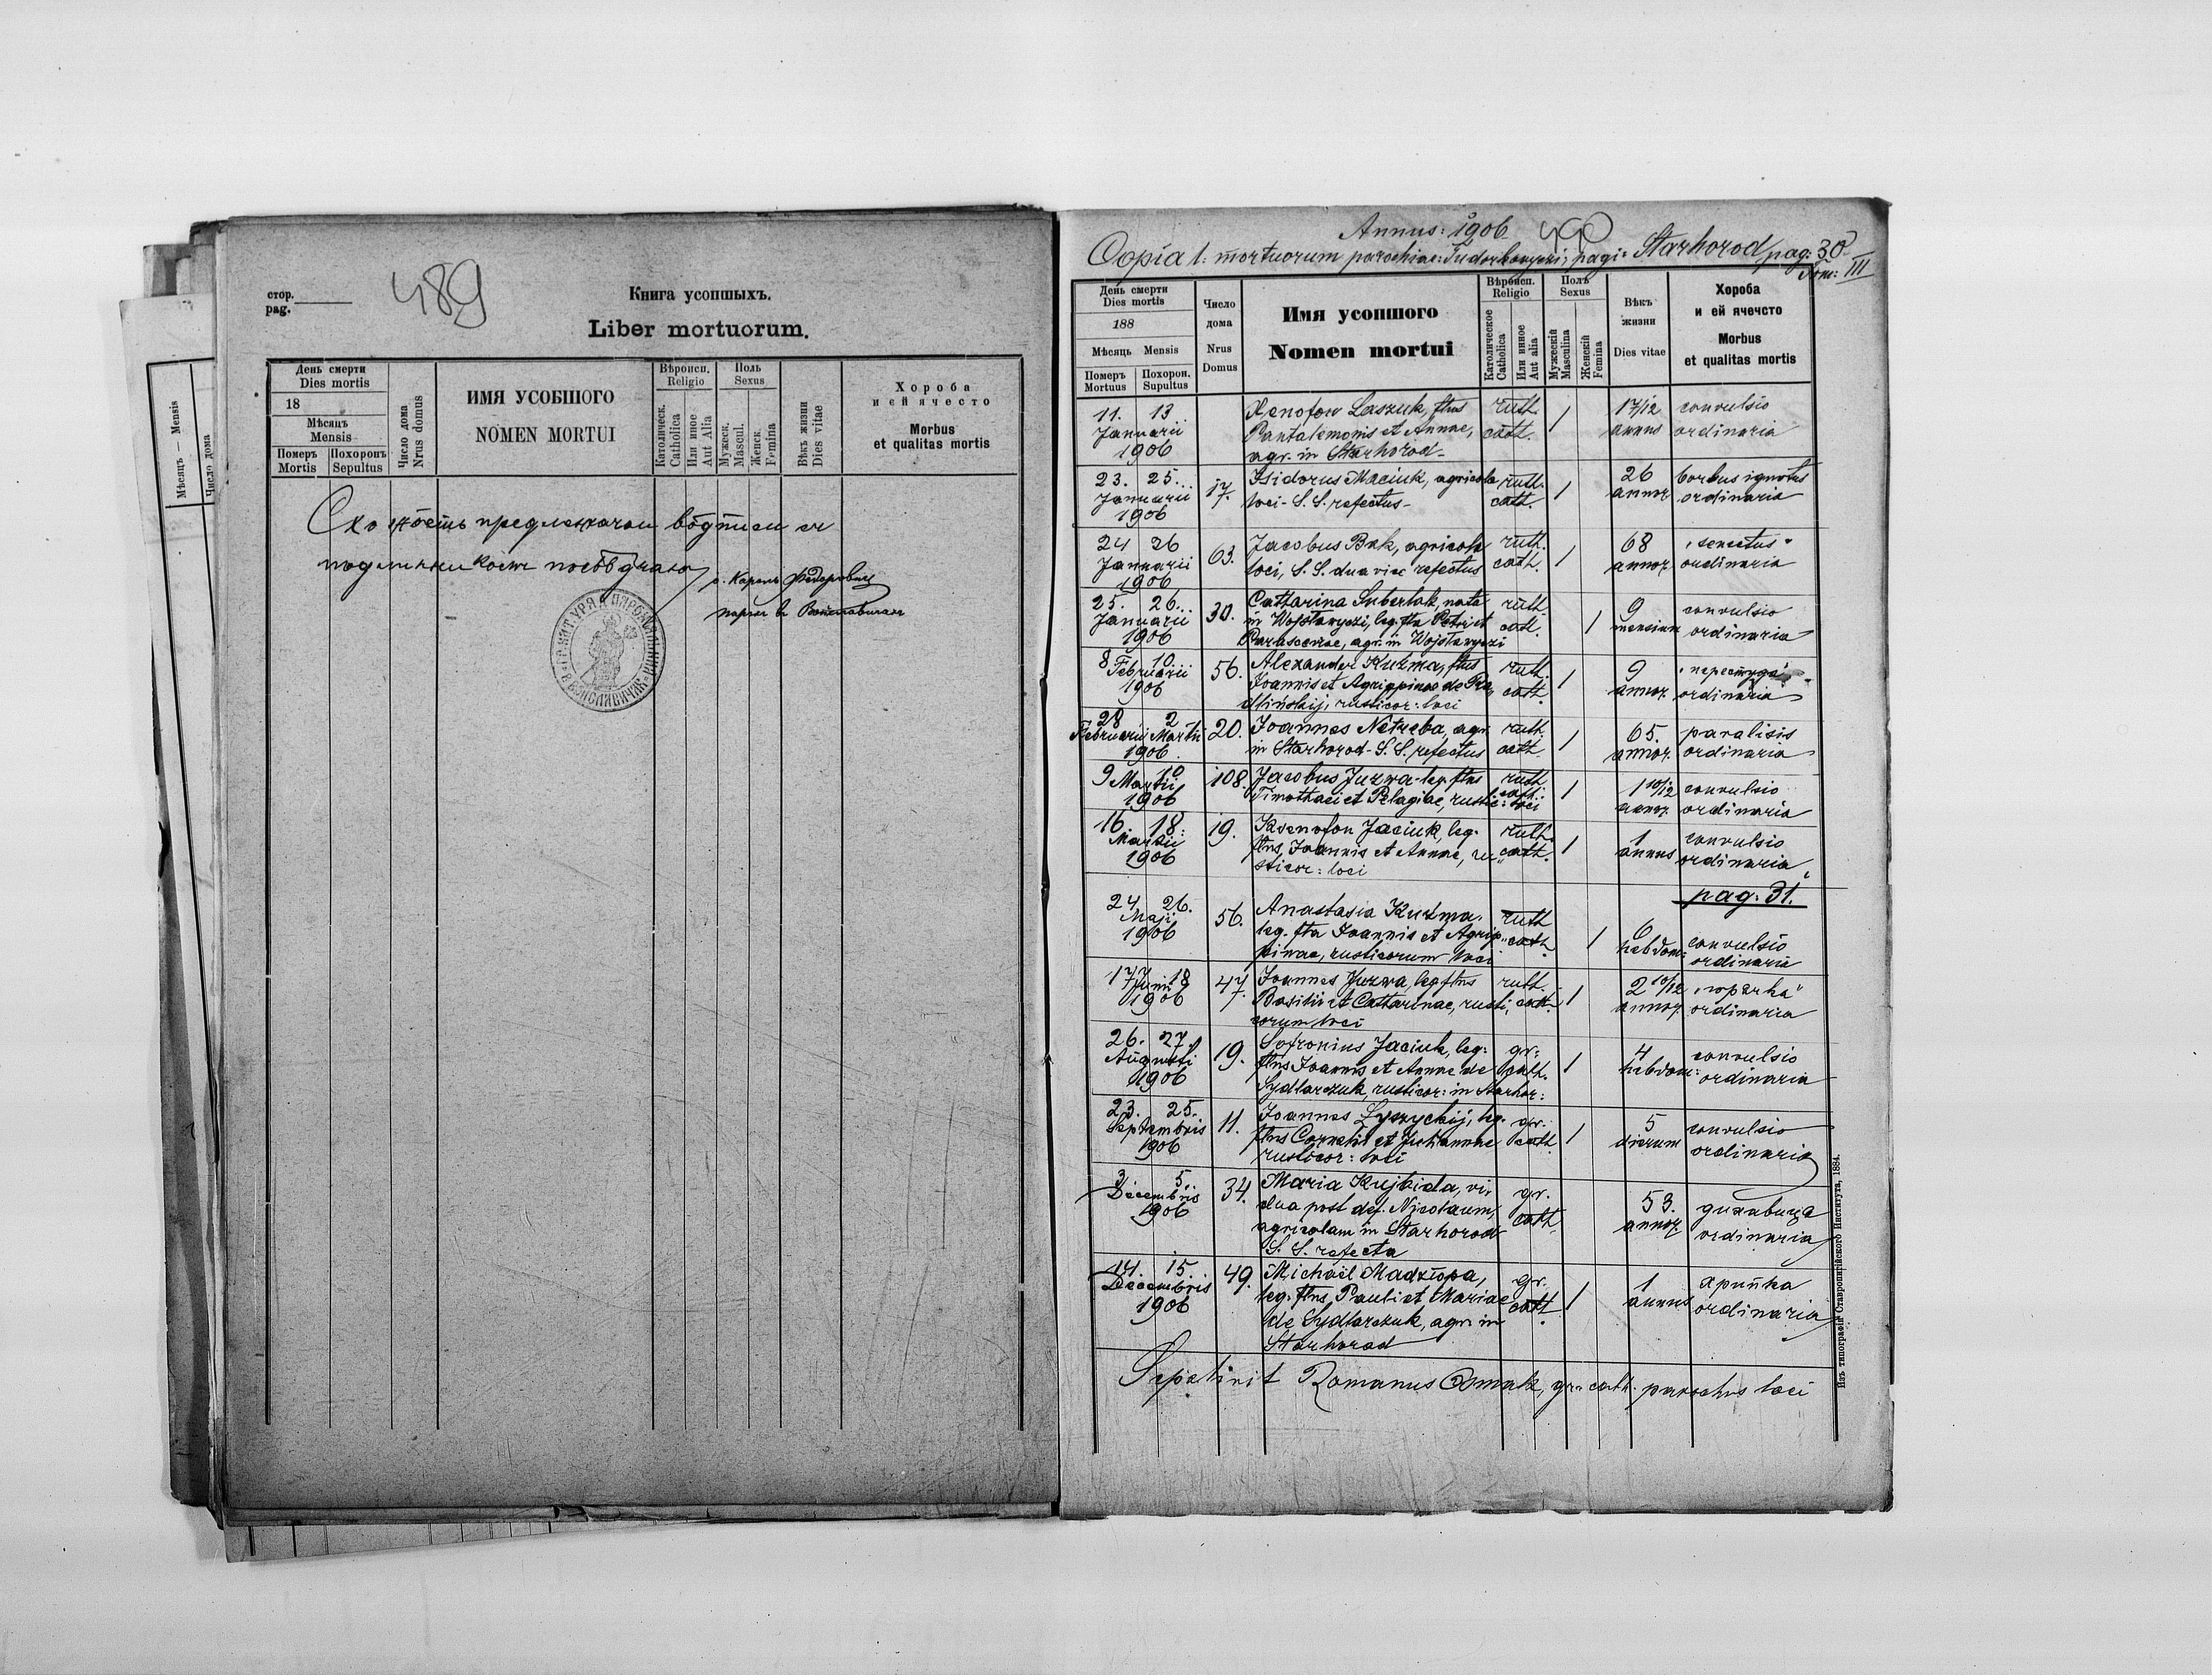 Мѣсяцъ — Mensis
Число дома
489
стор.
pag.
Книга усопшыхъ.
Liber mortuorum.
День смерти
Dies mortis
18
Мѣсяцъ
Mensis
Померъ
Mortis
Похоронъ
Sepultus
Число дома
Nrus domus
ИМЯ УСОБШОГО
NOMEN MORTUI
Вѣроисп.
Religio
Католическ.
Catholica
Или иное
Aut Alia
Поль
Sexus
Мужеск.
Mascul.
Женск.
Femina
Вѣкъ жизни
Dies vitae
Хороба
и ей ячесто
Morbus
et qualitas mortis
о. Карелъ Федоровиц
Annus: 1906 490
Copia l: mortuorum parochiae: Tudorkowyczi; pagi: Starhorod pag: 30
Tom: III
День смерти
Dies mortis
188
Мѣсяць Mensis
Померъ
Mortuus
Похорон.
Supultus
Число
дома
Nrus
Domus
Имя усопшого
Nomen mortui
Вѣроисп.
Religio
Католическое
Catholica
Или инное
Aut alia
Полъ
Sexus
Мужескій
Masculina
Женскій
Femina
Вѣкъ
жизни
Dies vitae
Хороба
и ей ячесто
Morbus
et qualitas mortis
11. 13 Xenofon Laszuk, flius ruth. 1 1 7/12 convulsio
Januarii Pantalemonis et Annae, cath. annus ordinaria
1906 agr. in Starhorod
23. 25. 17. Isidorus Maciuk, agricola ruth. 1 26 morbus ignotus
Januarii loci - S. S. refectus - cath. annor. ordinaria
1906
24 26 63. Jacobus Bak, agricola ruth. 1 68 "senectus"
Januarii loci, S. S. dua vice refectus cath. annor. ordinaria
1906
25. 26. 30. Catharina Suberlak, nata ruth. 1 9 convulsio
Januarii in Wojstawyczi, leg. fta Petri et cath. mensium ordinaria
1906 Parascevae, agr. in Wojstawyczi
8 10. 56. Alexander Kuźma, ftus ruth. 1 9 "перестуда"
Februarii Joannis et Agrippinae de cath. annor. ordinaria
1906 rusticor: loci
28 2 20. Joannes Netreba, agr. ruth. 1 65. paralisis
Februarii Martii in Starhorod - S. S. refectus cath. annor. ordinaria
1906
9 10 108. Jacobus Juzwa - leg. ftus ruth. 1 1 10/12 convulsio
Martii Timothaei et Pelagiae, rustic: loci cath. annor. ordinaria
1906
16. 18. 19. Ksenofon Jaciuk, leg. ruth. 1 1 convulsio
Martii ftus, Joannis et Annae, ru- cath. annus ordinaria
1906 sticor: loci
pag: 31.
24. 26. 56. Anastasia Kuźma, ruth. 1 6 convulsio
Maji leg. fta Joannis et Agrip- cath. hebdom: ordinaria
1906 pinae, rusticorum loci
17 18 47. Joannes Juzwa, leg. ftus ruth. 1 2 10/12
Junii Basilii et Catharinae, rusti- cath. annor. ordinaria
1906 corum loci
26. 27. 19. Sofronius Jaciuk, leg: gr: 1 4 convulsio
Augusti ftus Joannis et Annae de cath. hebdom: ordinaria
1906 Sydlarczuk, rusticor: in Starhor:
23. 25. 11. Joannes Łyszyckij, leg. gr. 1 5 convulsio
Septembris ftus Cornelii et Juliannae cath. dierum ordinaria
1906 rusticor: loci
3 5. 34. Maria Kujbida, vi- gr. 53. дихавица
Decembris dua post def. Nicolaum, cath. annor. ordinaria
1906 agricolam in Starhorod
S. S. refecta
14. 15. 49. Michaël Madziopa, gr. 1 1 хрипка
Decembris leg. ftus, Pauli et Mariae cath. annus ordinaria
1906 de Sydlarczuk, agr. in
Starhorod
Sepelivit Romanus Osmak, gr. cath. parochus loci
Изъ типографіи Ставропигійского Института, 1884.